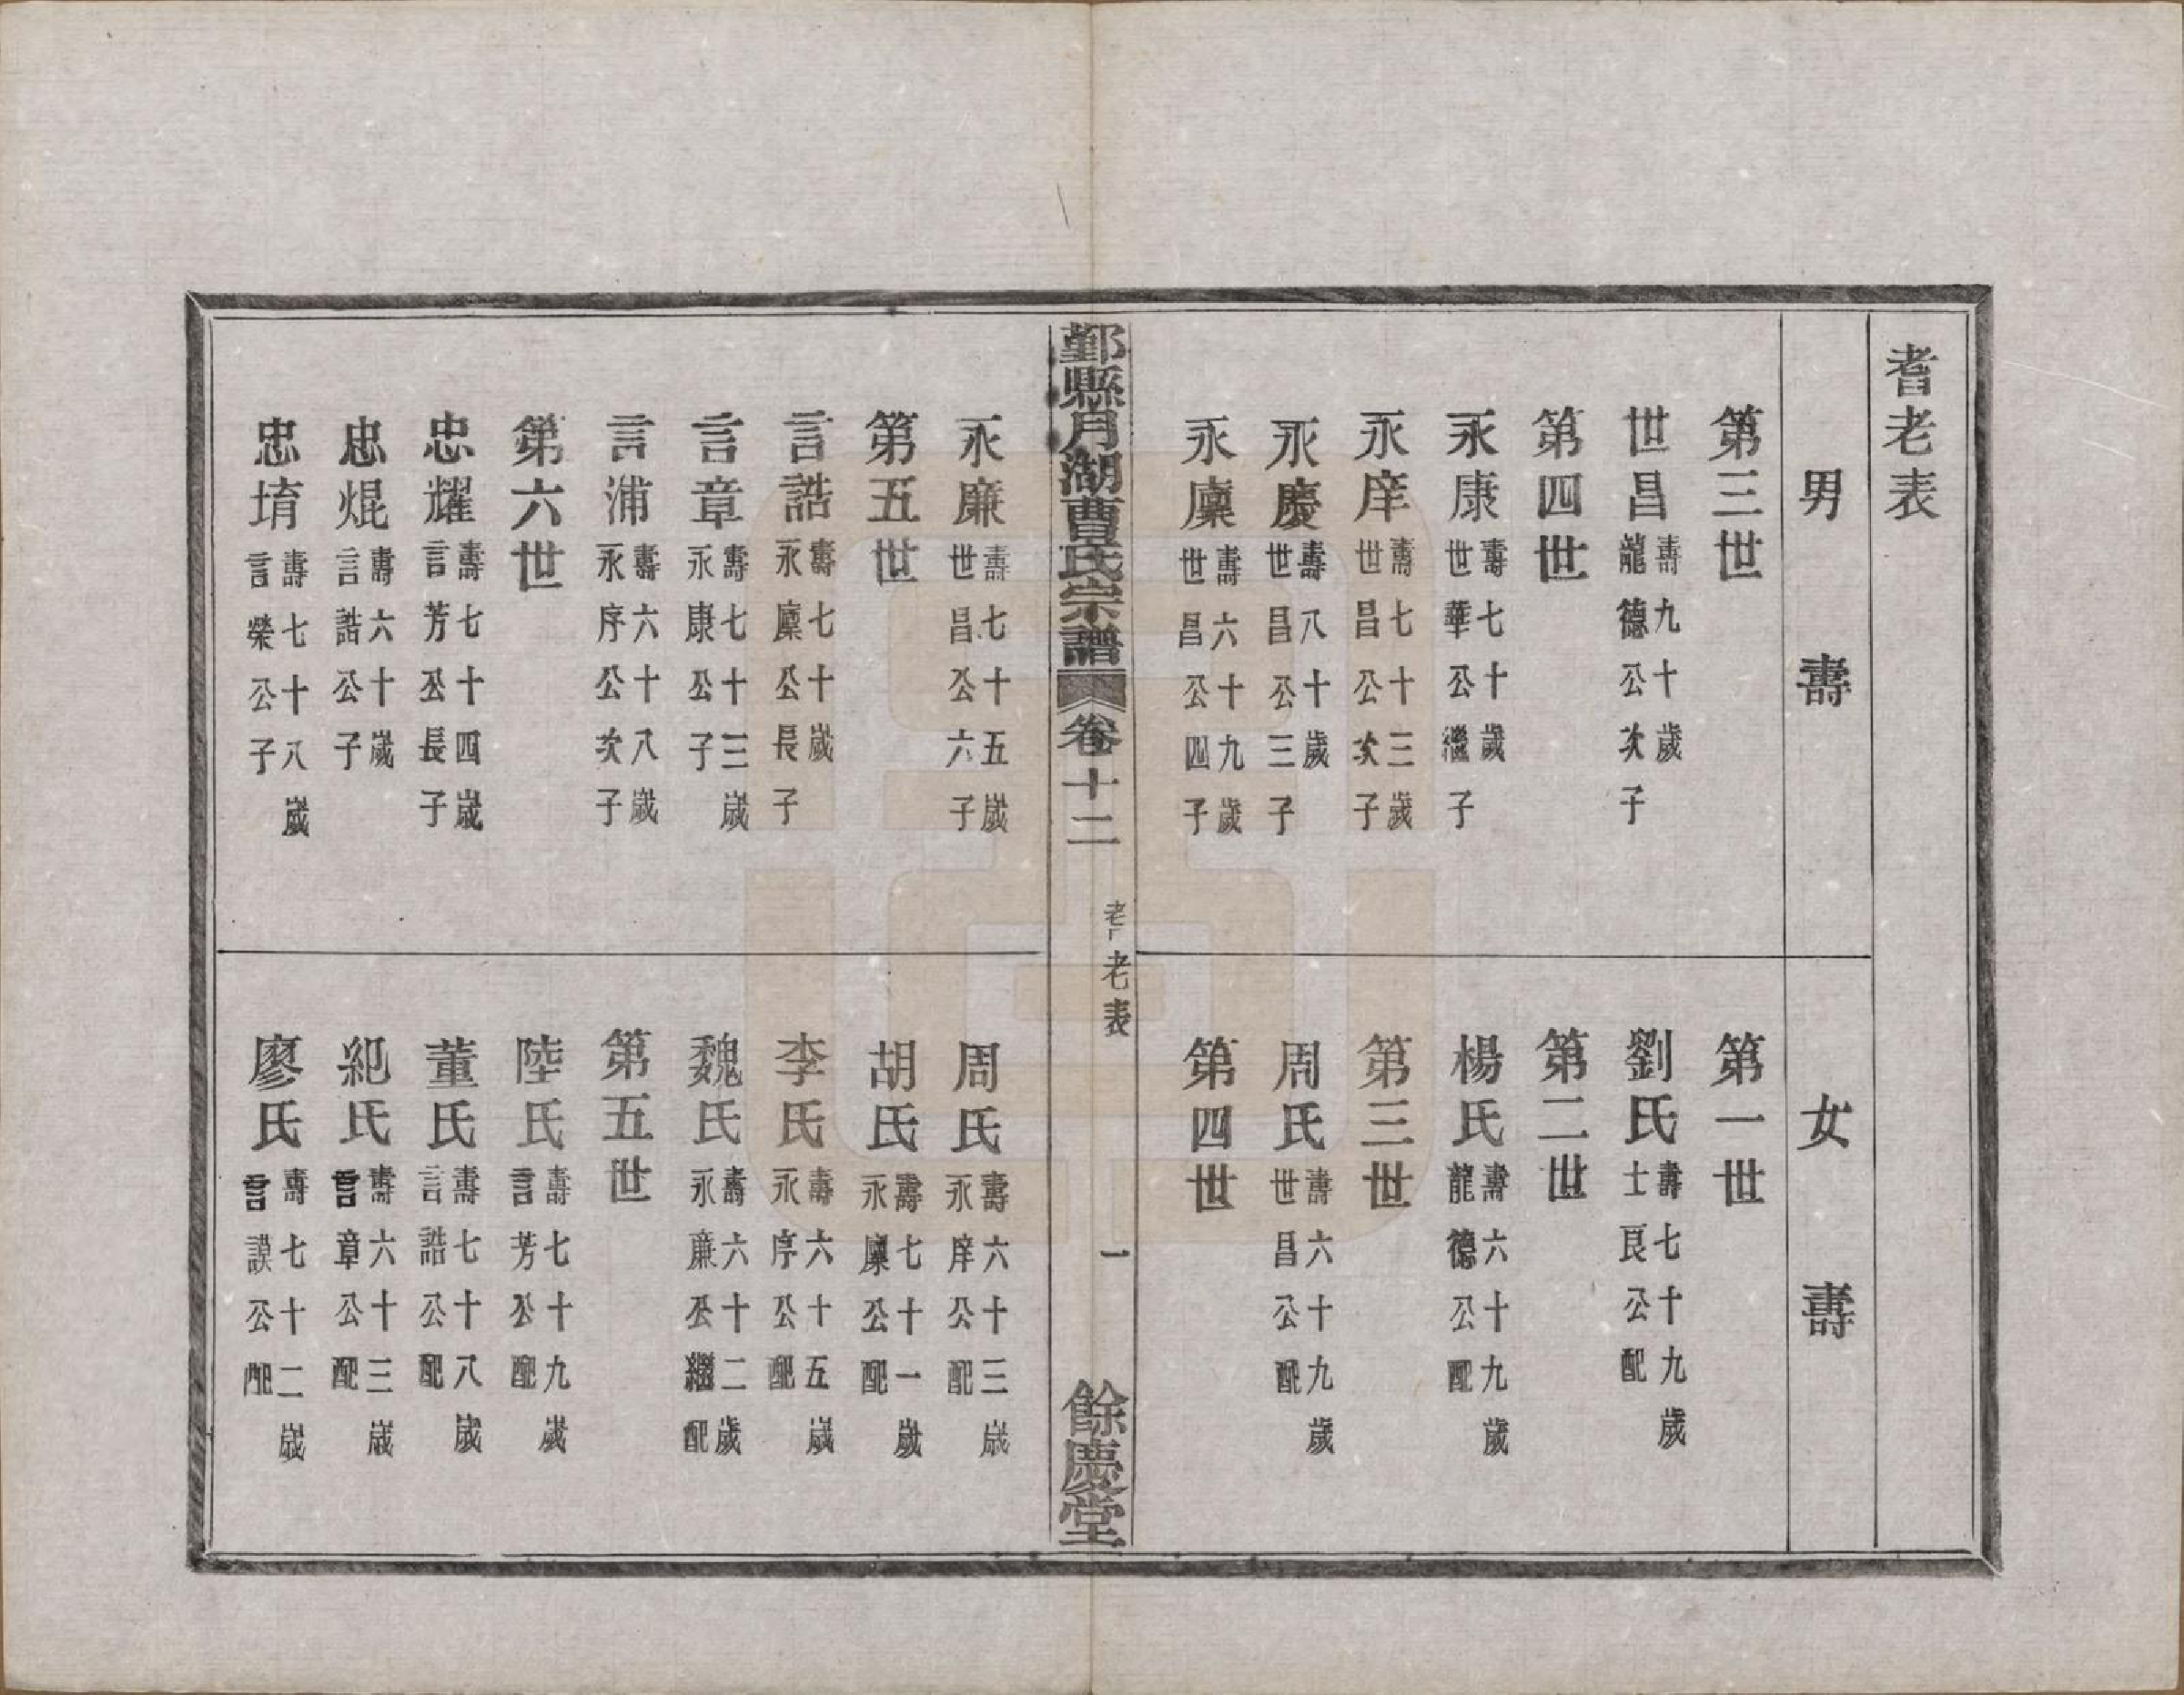 耆老表
男壽
第三世
世昌 壽九十歲 龍德公次子
第四世
永康 壽七十歲 世華公繼子
永庠 壽七十三歲 世昌公次子
永慶 壽八十歲 世昌公三子
永廩 壽六十九歲 世昌公四子
女壽
第一世
劉氏 壽七十九歲 士良公配
第二世
楊氏 壽六十九歲 龍德公配
第三世
周氏 壽六十九歲 世昌公配
第四世
鄞縣月湖曹氏宗譜 卷十二 耆老表 一 餘慶堂
永廉 壽七十五歲 世昌公六子
第五世
言誥 壽七十歲 永廩公長子
言章 壽七十三歲 永康公子
言浦 壽六十八歲 永序公次子
第六世
忠耀 壽七十四歲 言芳公長子
忠焜 壽六十歲 言誥公子
忠堉 壽七十八歲 言榮公子
周氏 壽六十三歲 永庠公配
胡氏 壽七十一歲 永廩公配
李氏 壽六十五歲 永序公配
魏氏 壽六十二歲 永廉公繼配
第五世
陸氏 壽七十九歲 言芳公配
董氏 壽七十八歲 言誥公配
紀氏 壽六十三歲 言章公配
廖氏 壽七十二歲 言謨公配